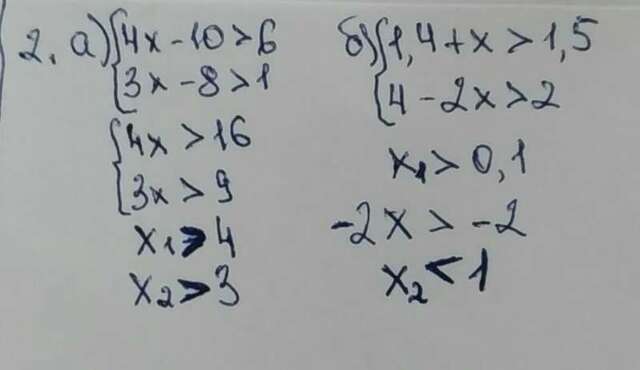 2. а) {4x - 10 > 6
{3x - 8 > 1
{4x > 16
{3x > 9
x₁ > 4
x₂ > 3
б) {1,4 + x > 1,5
{4 - 2x > 2
x₁ > 0,1
-2x > -2
x₂ < 1